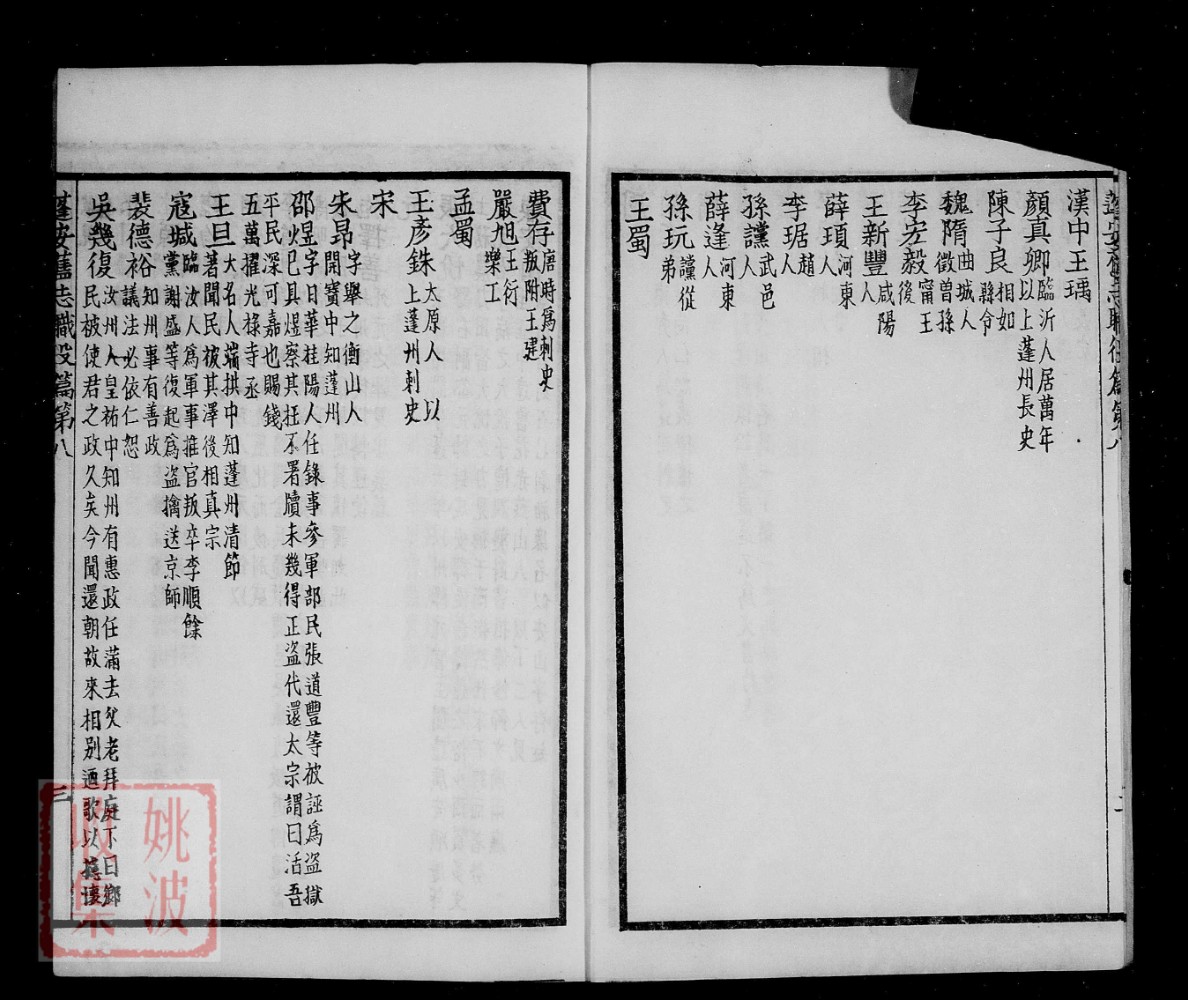 蓬安舊志職役篇第八
漢中王瑀
顏真卿臨沂人居萬年以上蓬州長史
陳子良相如縣令
魏隋曲城人徵曾孫
李宏毅甯王後
王新豐咸陽人
薛頊河東人
李琚趙人
孫讜武邑人
薛逢河東人
孫玩讜從弟
王蜀
二
費存唐時爲刺史叛附王建
嚴旭王衍樂工
孟蜀
王彥銖太原人以上蓬州刺史
宋
朱昂字舉之衡山人開寶中知蓬州
邵煜字日華桂陽人任錄事參軍部民張道豐等被誣爲盜獄將
火已具煜察其枉不署牘未幾得正盜代還太宗謂曰活吾
平民深可嘉也賜錢
五萬擢光祿寺丞
王旦大名人端拱中知蓬州清節著聞民被其澤後相真宗
寇瑊臨汝人爲軍事推官叛卒李順餘黨謝盛等復起爲盜擒送京師
裴德裕知州事有善政議法必依仁恕
吳幾復汝州人皇祐中知州有惠政任滿去父老拜庭下曰鄉民被使君之政久矣今聞還朝故來相別迺歌以
蓬安舊志職役篇第八
三
姚波
收集